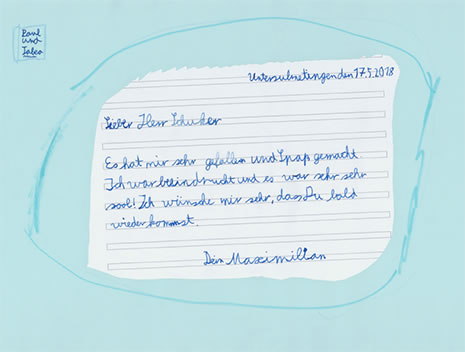 Paul
und
Untersulmetingen den 17.5.2018
Lieber Herr Schuker
Es hat mir sehr gefallen und Spap gemacht
Ich war beeindruckt und es war sehr sehr
cool! Ich wünsche mir sehr, dass Du bald
wieder kommst.
Dein Maximilian